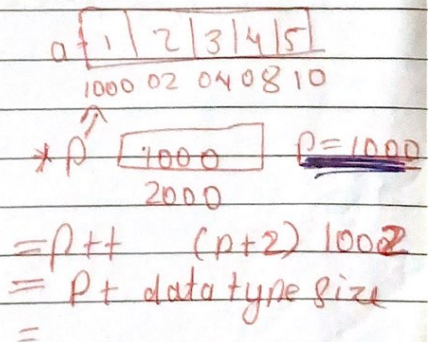 a 1 2 3 4 5
1000 02 04 08 10
* p 1000 P=1000
2000
= P++ (P+2) 1002
= P+ data type size
=